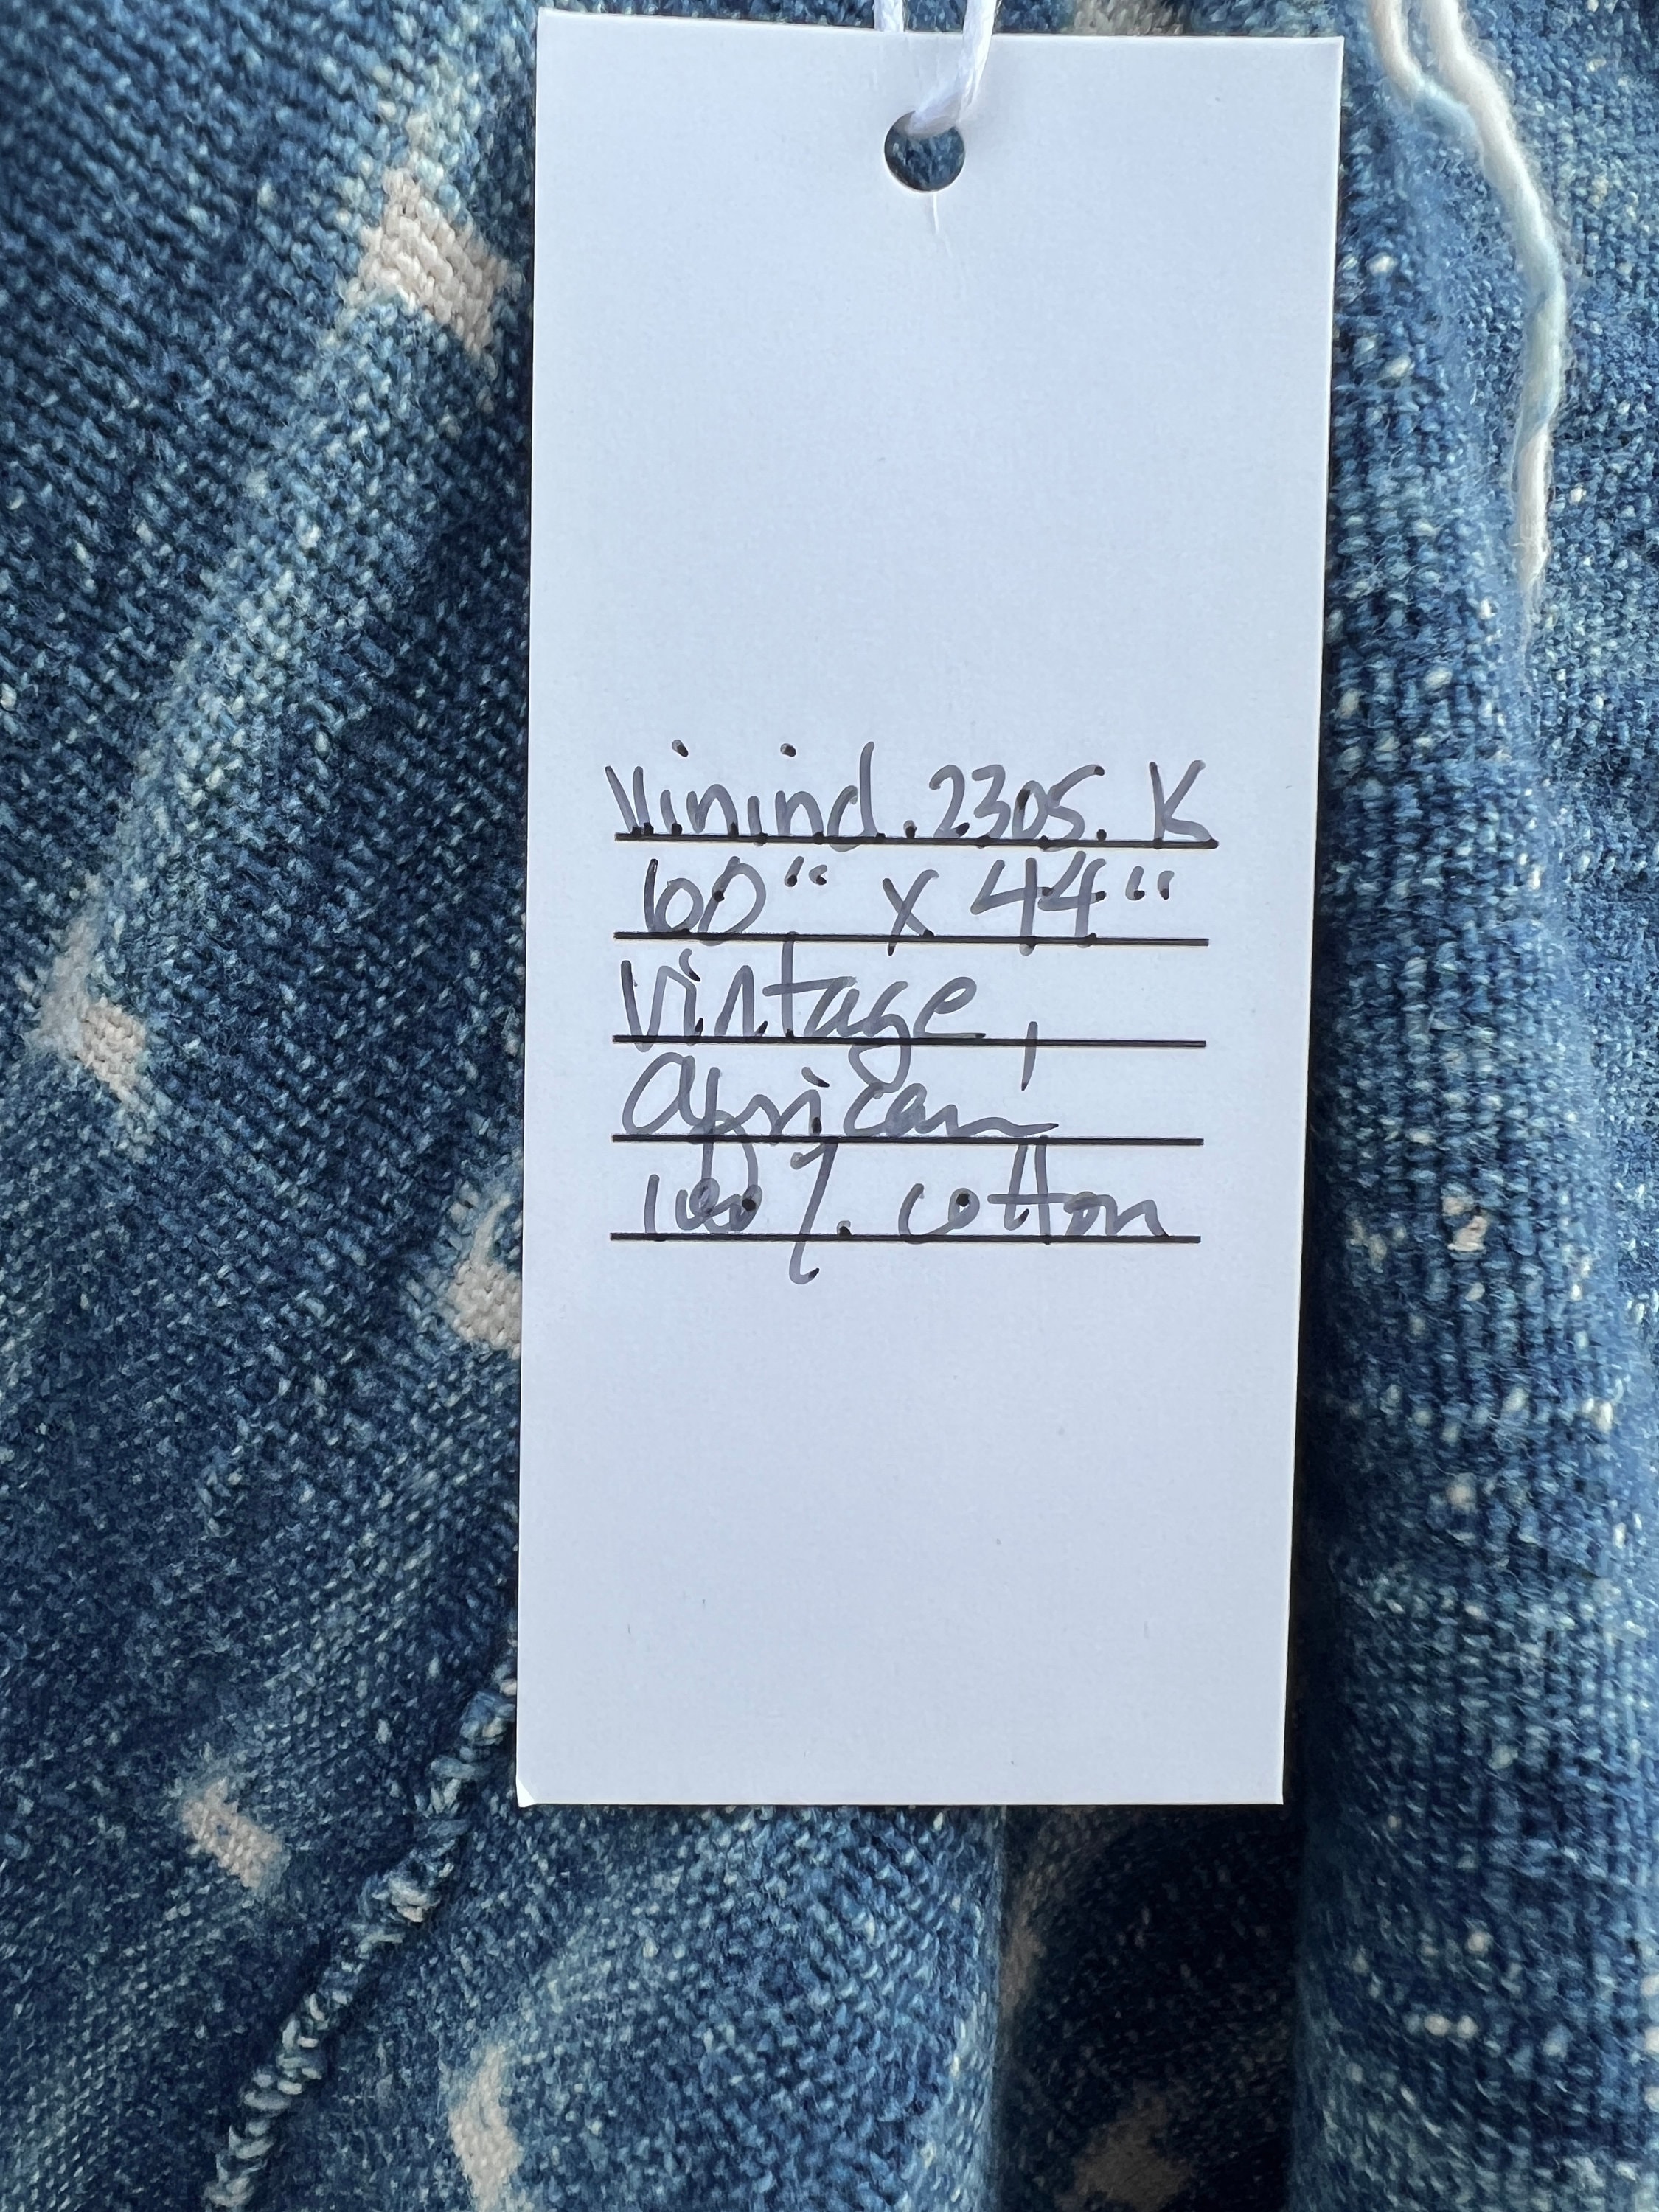 Vinind.2305.K
60" x 44"
Vintage,
African
100% cotton